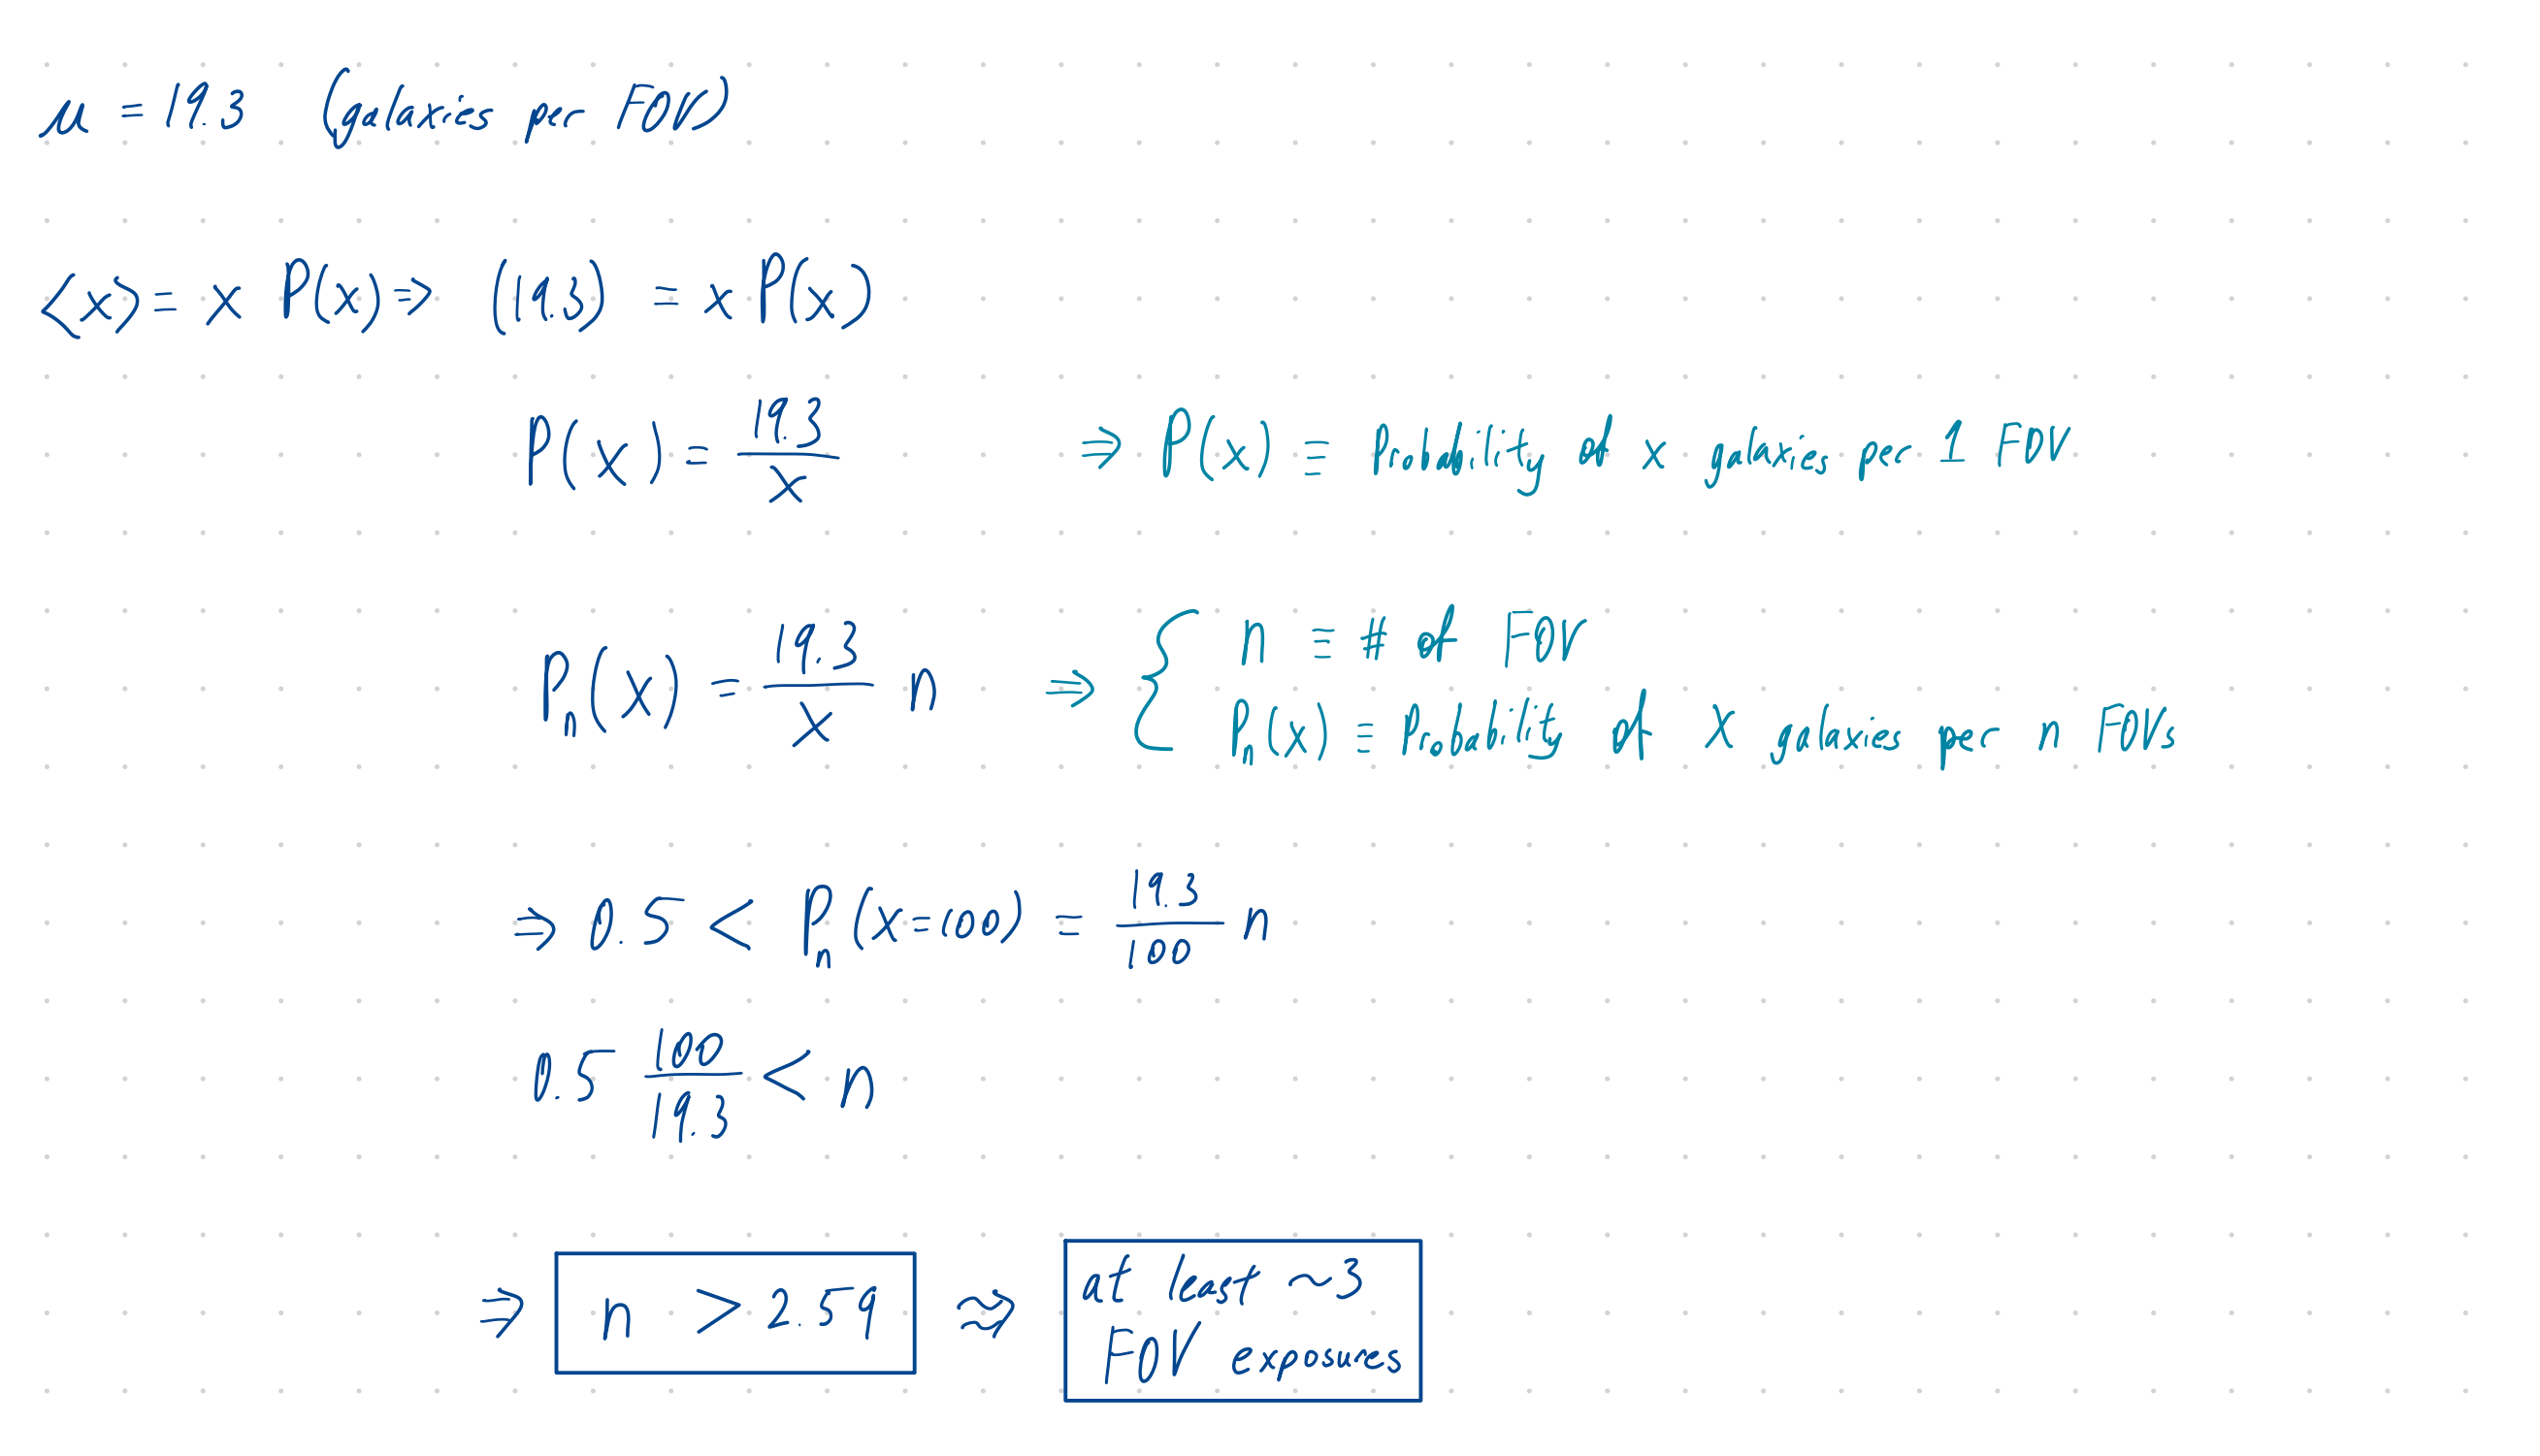 μ = 19.3 (galaxies per FOV)
<x> = x P(x) ⇒ (19.3) = x P(x)
P(x) = 19.3/x ⇒ P(x) ≡ Probability of x galaxies per 1 FOV
P_n(x) = 19.3/x n ⇒ { n ≡ # of FOV
P_n(x) ≡ Probability of x galaxies per n FOVs
⇒ 0.5 < P_n(x=100) = 19.3/100 n
0.5 100/19.3 < n
⇒ n > 2.59 ≈> at least ~3
FOV exposures